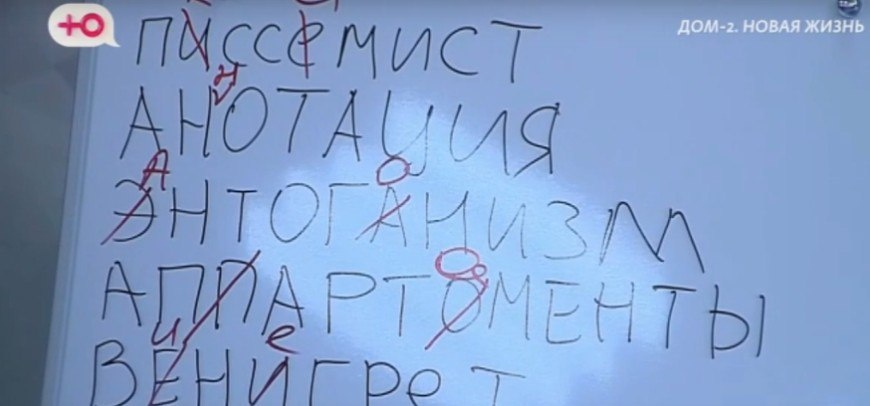 Ю
ДОМ-2. НОВАЯ ЖИЗНЬ
ПИССЕМИСТ
АНОТАЦИЯ
Н
А
О
ЭНТОГАНИЗМ
АППАРТОМЕНТЫ
и
е
ВЕНИГРЕТ